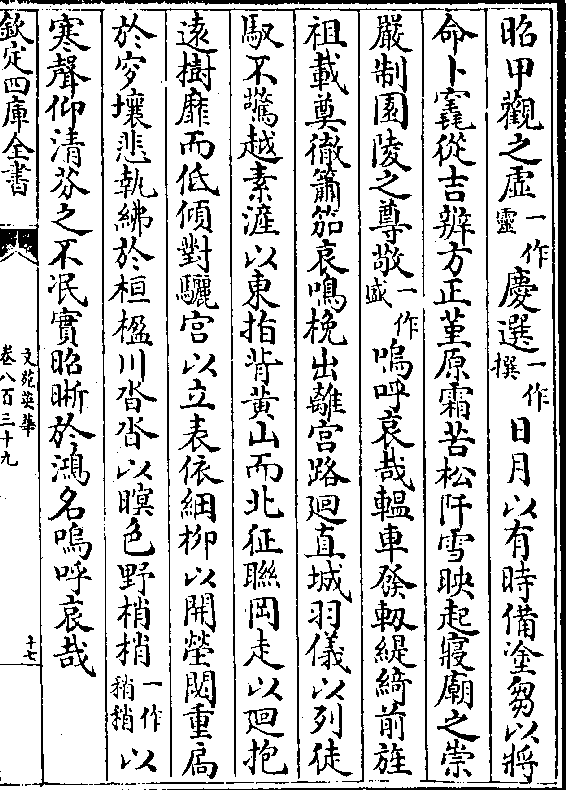 昭甲觀之虛一作靈慶選一作撰日月以有時備塗芻以將
命卜竁從吉辨方正堇原霜苦松阡雪映起寢廟之崇
嚴制園陵之尊敬一作盛嗚呼哀哉轀車發軔緹綺前旌
祖載奠徹簫笳哀鳴梚出離宮路迴直城羽儀以列徒
馭不驚越素滻以東指背黃山而北征聯岡走以迴抱
遠樹靡而低傾對驪宮以立表依細柳以開塋閟重扃
於穸壞悲執紼於桓楹川沓沓以暝色野梢梢一作稍稍以
寒聲仰清芬之不泯實昭晰於鴻名嗚呼哀哉
欽定四庫全書
文苑英華
卷八百三十九
十七